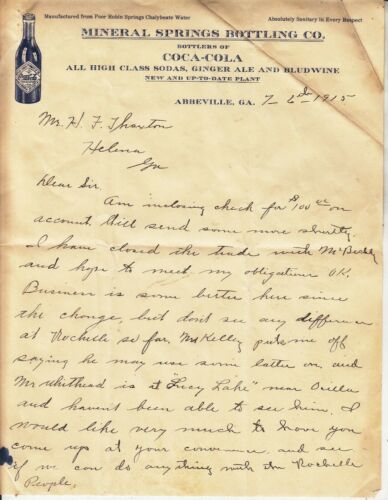 Manufactured from Poor Robin Springs Chalybeate Water
Absolutely Sanitary in Every Respect
MINERAL SPRINGS BOTTLING CO.
BOTTLERS OF
COCA-COLA
ALL HIGH CLASS SODAS, GINGER ALE AND BLUDWINE
NEW AND UP-TO-DATE PLANT
ABBEVILLE, GA. 7 1915
Mr. H. F. Thaxton
Helena
Ga
Dear Sir.
Am inclosing check for $100 00 on
account. Will send some more shortly.
I have closed the trade with Mr
and hope to meet my obligations OK.
Business is some better here since
the change, but dont see any difference
at Rochelle so far, Mr Kelley puts me off
saying he may use some latter on, and
Mr Whithead is at "Lucy Lake" near Ocilla
and havent been able to see him. I
would like very much to have you
come up at your convenience, and see
if we can do anything with the Rochelle
People,